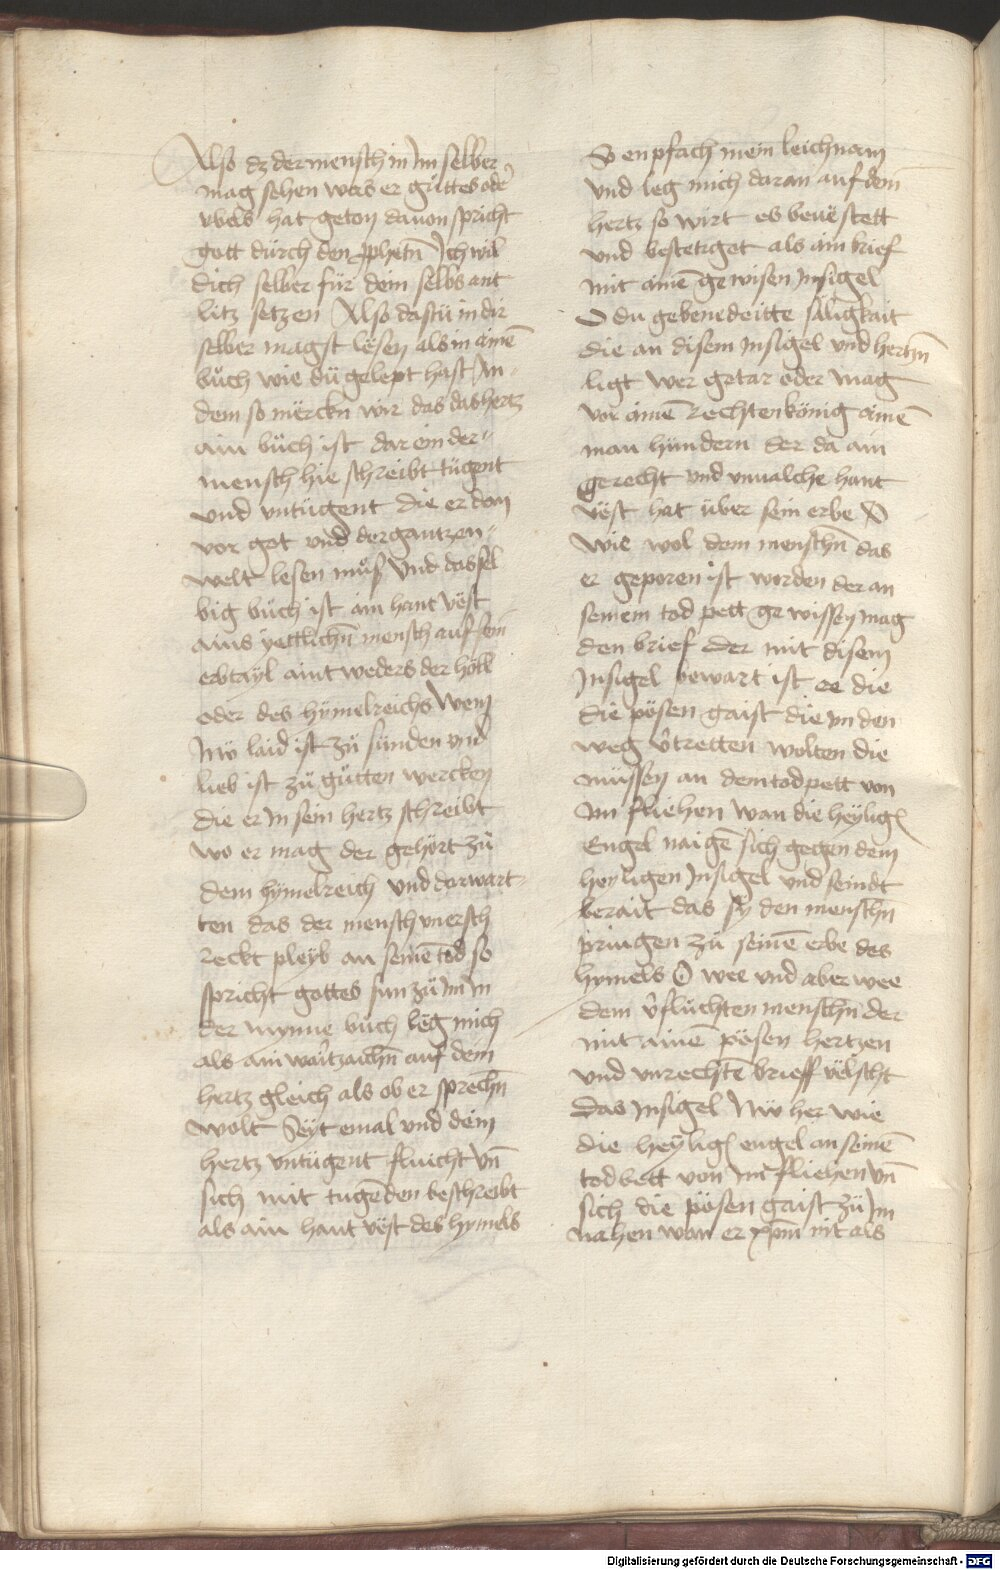 Also dz der mensch in Im selber
mag sehen was er guttes oder
vbels hat geton dauon spricht
gott durch den pphetn̄ Ich wil
dich selber für dein selbs ant
litz setzen Also dastu in dir
selber magst lësen als in ainē
bůch wie dü gelept hast In-
dem so mërckn wir das das hertz
ain bůch ist dar ein der-
mensch hie schreibt tügent
und vntügent die er dan
vor got vnd der gantzen-
welt lesen můß Vnd das sel
big bůch ist ain hant vëst
ains yettlichn̄ mensch auf sein
erbtayl aintweders der höll
oder des hymelreichs Wem
Nw laid ist zů sünden vnd
lieb ist zů gütten wercken
die er in sein hertz schreibt
wo er mag der gehört zů
dem hymelreich vnd darwart-
ten das der mensch vnersch
reckt pleyb an seinē tod so
spricht gottes sun zů Im In
der mynne bůch lëg mich
als ain wortzaichn̄ auf dein
hertz gleich als ob er sprechn̄
wolt Seyt emal vnd dein
hertz vntügent flüicht vn̄
sich mit tugēden beschreibt
als ain hant vëst des hymels
So enpfach mein leichnam
vnd leg mich daran auf dein
hertz so wirt es beuëstett
vnd bestetiget als ain brief
mit ainē gewisen Insigel
O du gebenedeitte säligkait
die an disem Insigel vnd hertzn̄
ligt wer getar oder mag
vor ainē rechten könig ainē
man hündern der da ain
gerecht vnd vnualche hant
vëst hat über sein erbe O
wie wol dem menschn̄ das
er geporen ist worden der an
seinem tod pett gewissen mag
den brief der mit disem
Insigel bewart ist ee die
die pösen gaist die Im den
weg v̄tretten wolten die
müssen an dem todpett von
Im fliehen wan die heylign
Engel naigē sich gegen dem
heyligen Insigel vnd seindt
berait das sy den menschn̄
pringen zů seinē erbe des
hymels O wee vnd aber wee
dem v̄flůchten menschn̄ der
mit ainē pösen hertzen
vnd vnrechtē brieff vëlscht
das Insigel Nw her wie
die heylign engel an seinē
todbett von im fliehen vn̄
sich die pösen gaist zů Im
nahen wan er xpm̄ nit als
Digitalisierung gefördert durch die Deutsche Forschungsgemeinschaft - DFG